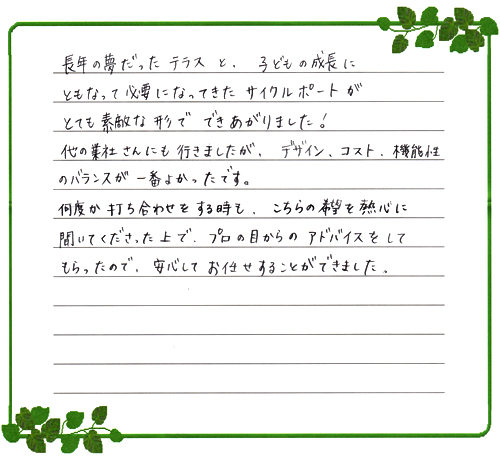 長年の夢だった テラス と、子どもの成長に
ともなって必要になってきた サイクルポートが
とても素敵な形で できあがりました！
他の業社さんにも行きましたが、デザイン、コスト、機能性
のバランスが一番よかったです。
何度か打ち合わせをする時も、こちらの希望を熱心に
聞いてくださった上で、プロの目からの アドバイスをして
もらったので、安心して お任せすることができました。